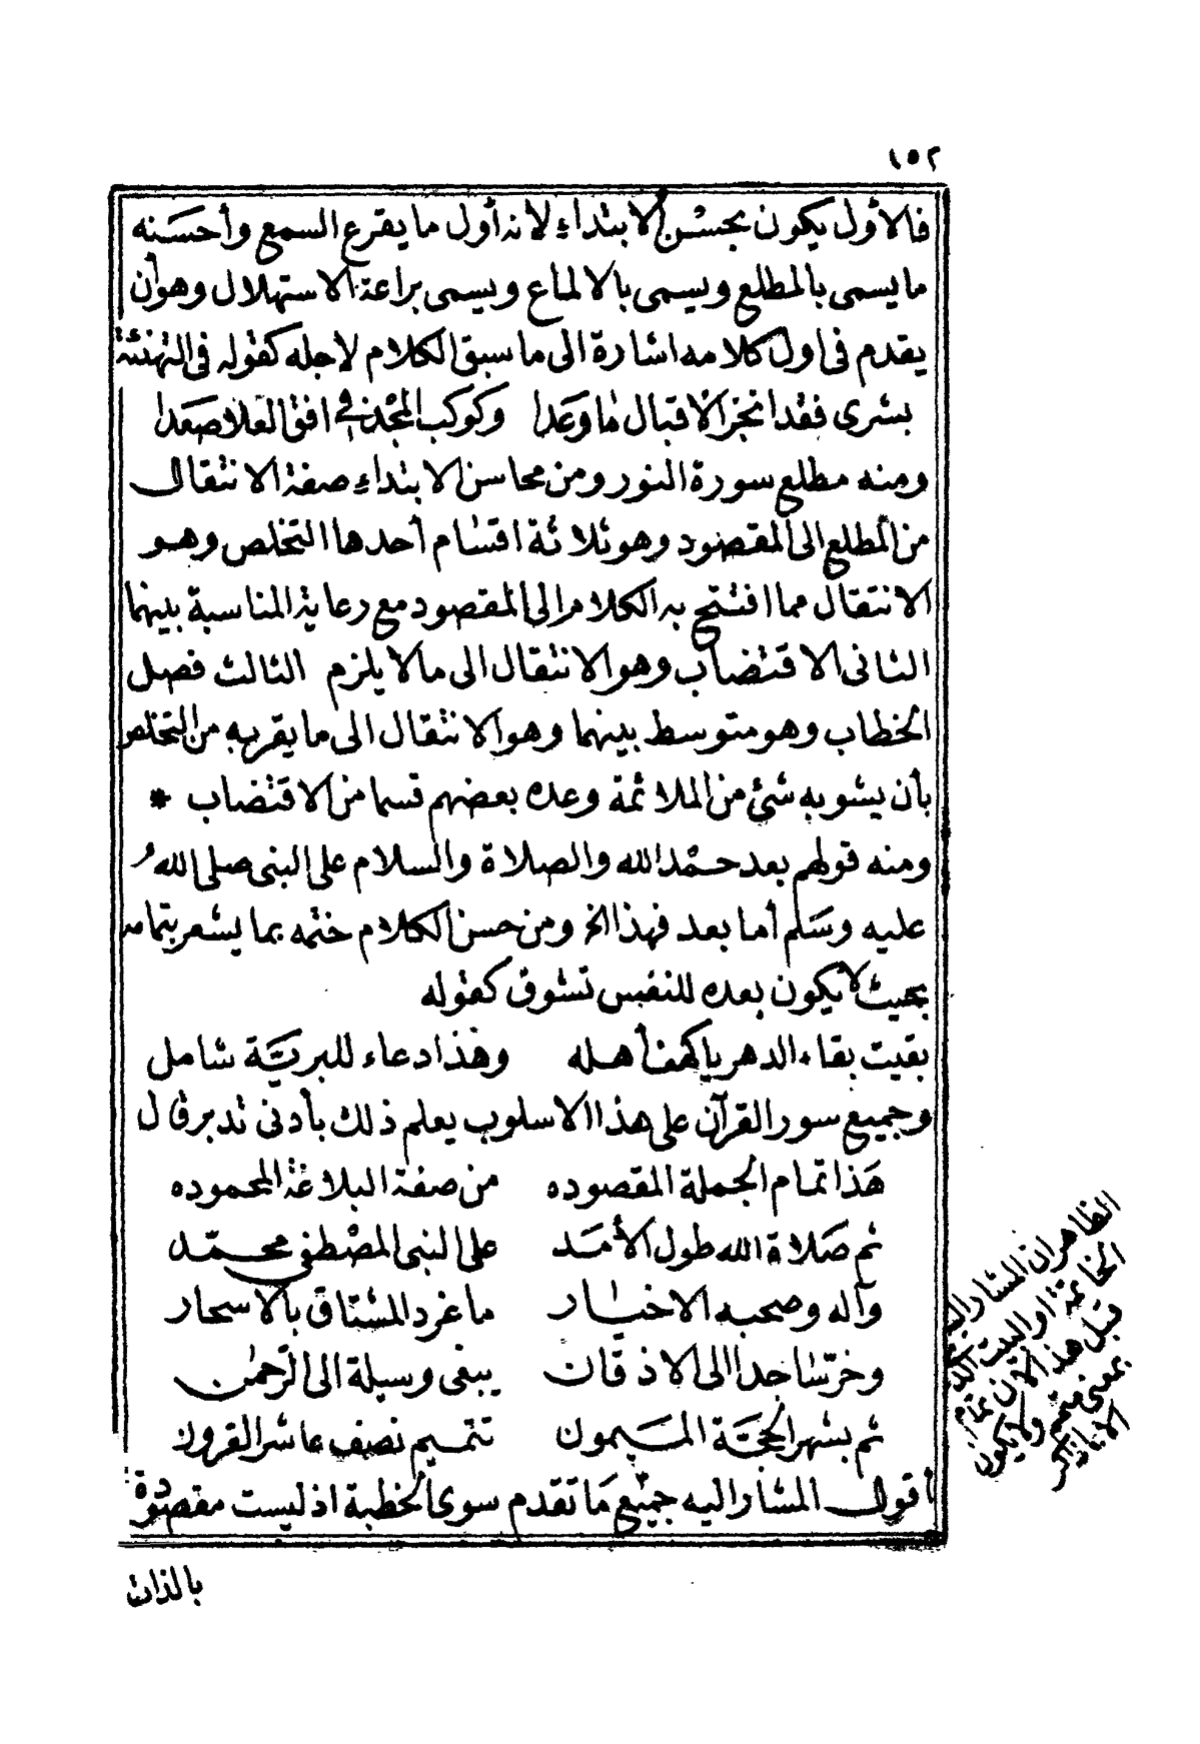 ١٥٢
فالأول يكون بحسن الابتداء لانه أول ما يقرع السمع وأحسنه
ما يسمى بالمطلع ويسمى بالالماع ويسمى براعة الاستهلال وهو أن
يقدم فى اول كلامه اشارة الى ما سبق الكلام لاجله كقوله فى التهنئة
بشرى فقد انجز الاقبال ما وعدا وكوكب المجد فى افق العلا صعدا
ومنه مطلع سورة النور ومن محاسن الابتداء صفة الانتقال
من المطلع الى المقصود وهو ثلاثة اقسام أحدها التخلص وهو
الانتقال مما افتتح به الكلام الى المقصود مع رعاية المناسبة بينهما
الثانى الاقتضاب وهو الانتقال الى ما لا يلزم الثالث فصل
الخطاب وهو متوسط بينهما وهو الانتقال الى ما يقربه من التخلص
بأن يشوبه شئ من الملائمة وعده بعضهم قسما من الاقتضاب *
ومنه قولهم بعد حمد الله والصلاة والسلام على النبى صلى الله
عليه وسلم أما بعد فهذا الخ ومن حسن الكلام ختمه بما يشعر بتمامه
بحيث لا يكون بعده للنفس تشوق كقوله
بقيت بقاء الدهر ياكهف أهله وهذا دعاء للبرية شامل
وجميع سور القرآن على هذا الاسلوب يعلم ذلك بأدنى تدبر قال
هذا تمام الجملة المقصوده من صفة البلاغة المحموده
ثم صلاة الله طول الأمد على النبى المصطفى محمد
وآله وصحبه الاخيار ما غرد المشتاق بالاسحار
وخر ساجدا الى الاذقان يبغى وسيلة الى الرحمن
ثم بشهر الحجة الميمون تتميم نصف عاشر القرون
أقول المشار اليه جميع ما تقدم سوى الخطبة اذ ليست مقصودة
بالذات
الظاهر ان المشار اليه
الخاتمة او البيت الذى
قبل هذا لأن تمام
بمعنى متمم ولا يكون